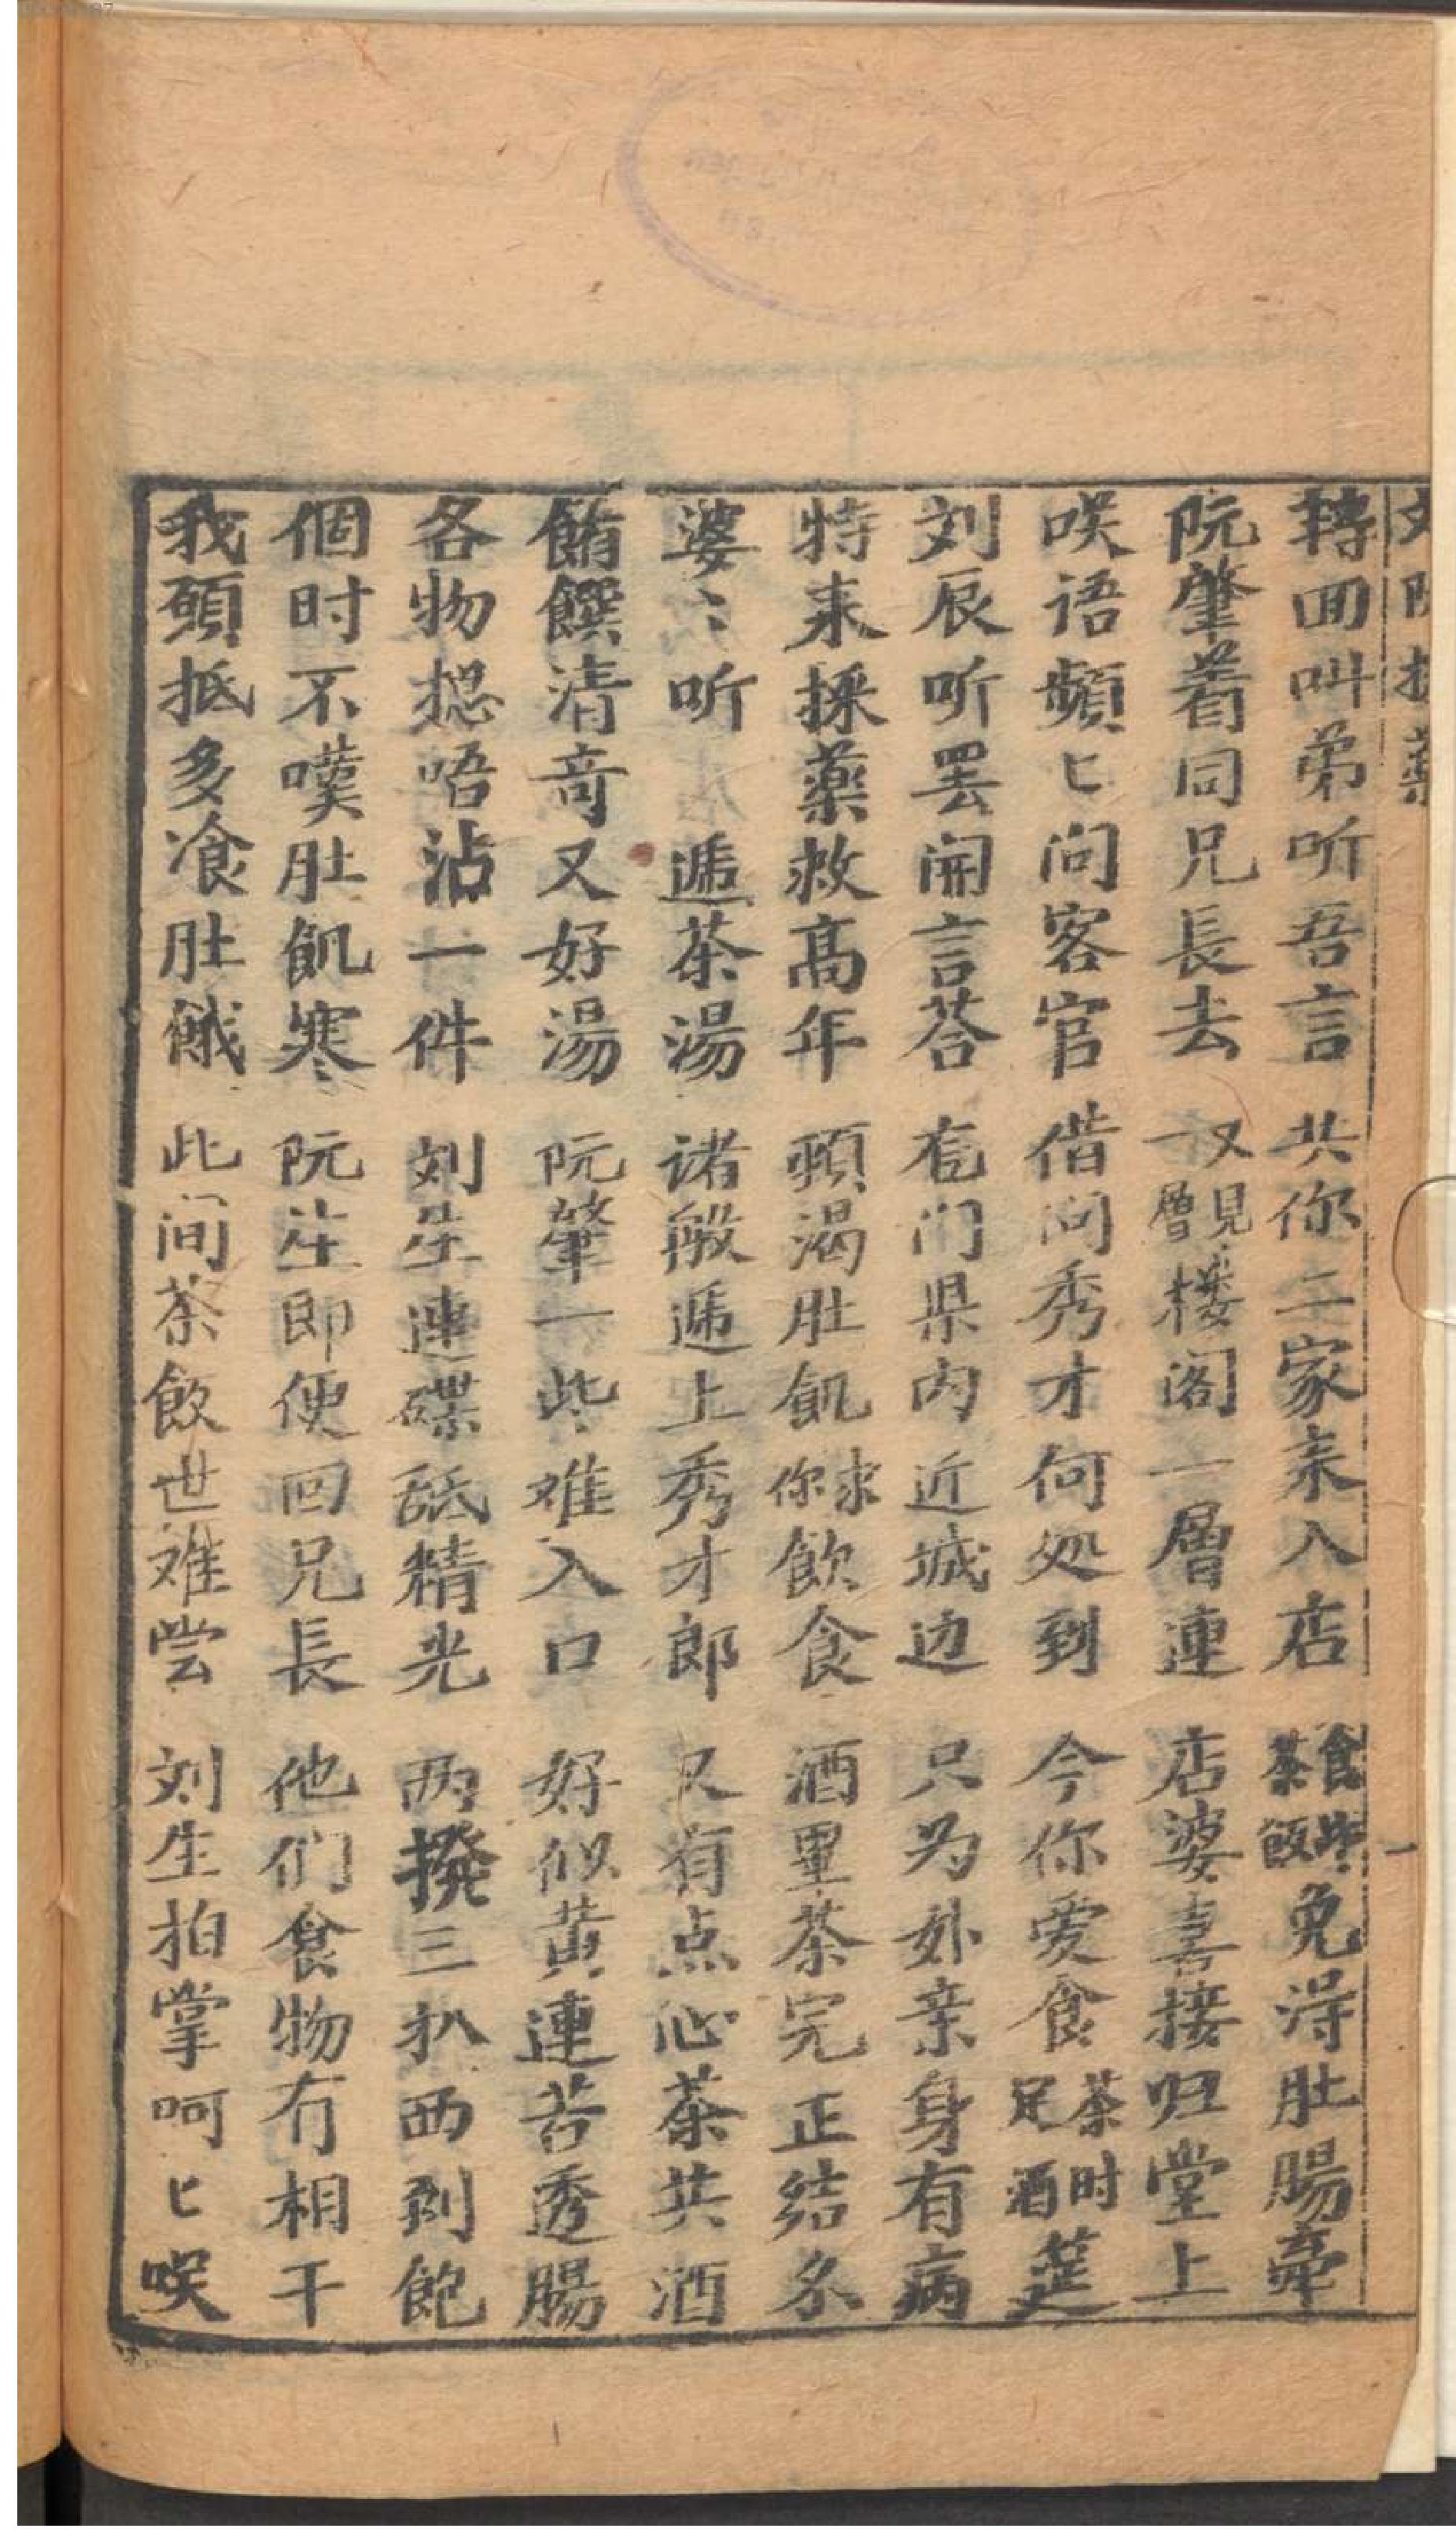 转囬叫弟听吾言 共你二家来入店 食些茶飯免淂肚腸牽
阮肇着同兄長去 又見一層楼阁一層連 店婆喜接归堂上
咲语頻匕问客官 借问秀才何处到 今你爱食茶时足酒筵
刘辰听罢開言荅 门県内近城边 只为外亲身有病
特来採藥救高年 頸渴肚飢求你飲食 酒里茶完正结
婆〻听 遞茶湯 诸般遞上秀才郎 又有点心茶共酒
餚饌清竒又好湯 阮肇一些难入口 好似黄連苦透腸
各物揔唔沾一件 刘生連碟舐精光 两撥三扒西到飽
個时不嘆肚飢寒 阮生即便回兄長 他们食物冇相干
我頭抵多飡肚餓 此间茶飲世难尝 刘生拍掌呵匕咲